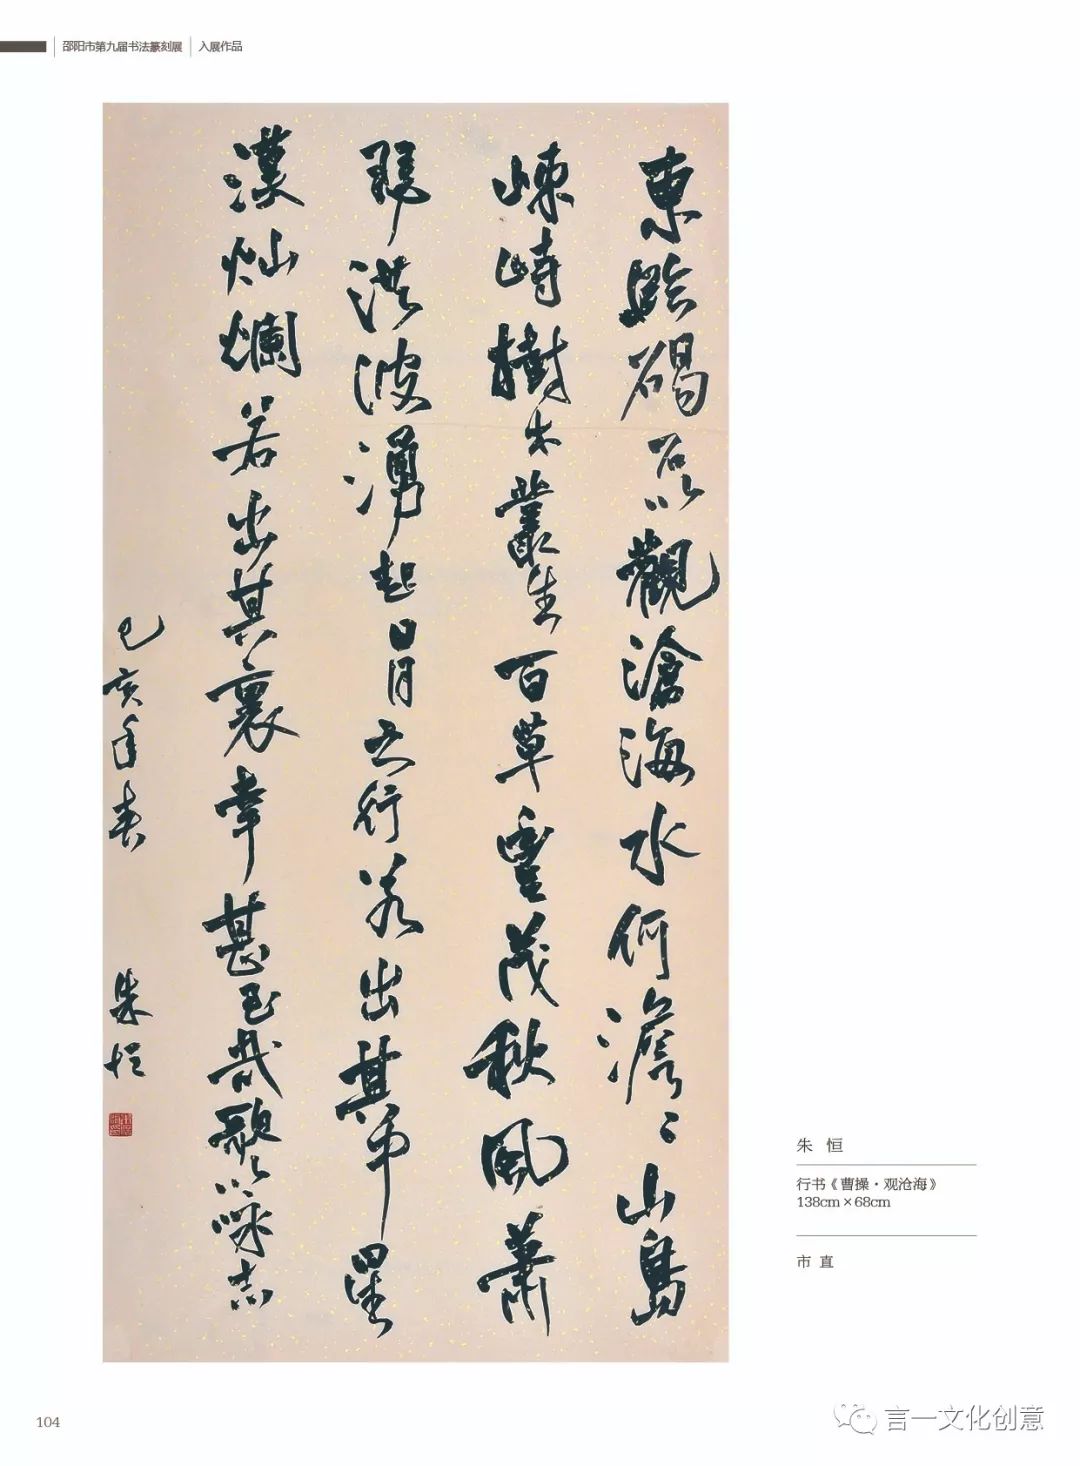 邵阳市第九届书法篆刻展 入展作品
東臨碣石以觀滄海水何澹〻山島
竦峙樹木叢生百草豐茂秋風蕭
瑟洪波湧起日月之行若出其中星
漢灿爛若出其裏幸甚至哉歌以詠志
己亥年春 朱恒
朱 恒
行书《曹操·观沧海》
138cm×68cm
市 直
104
言一文化创意